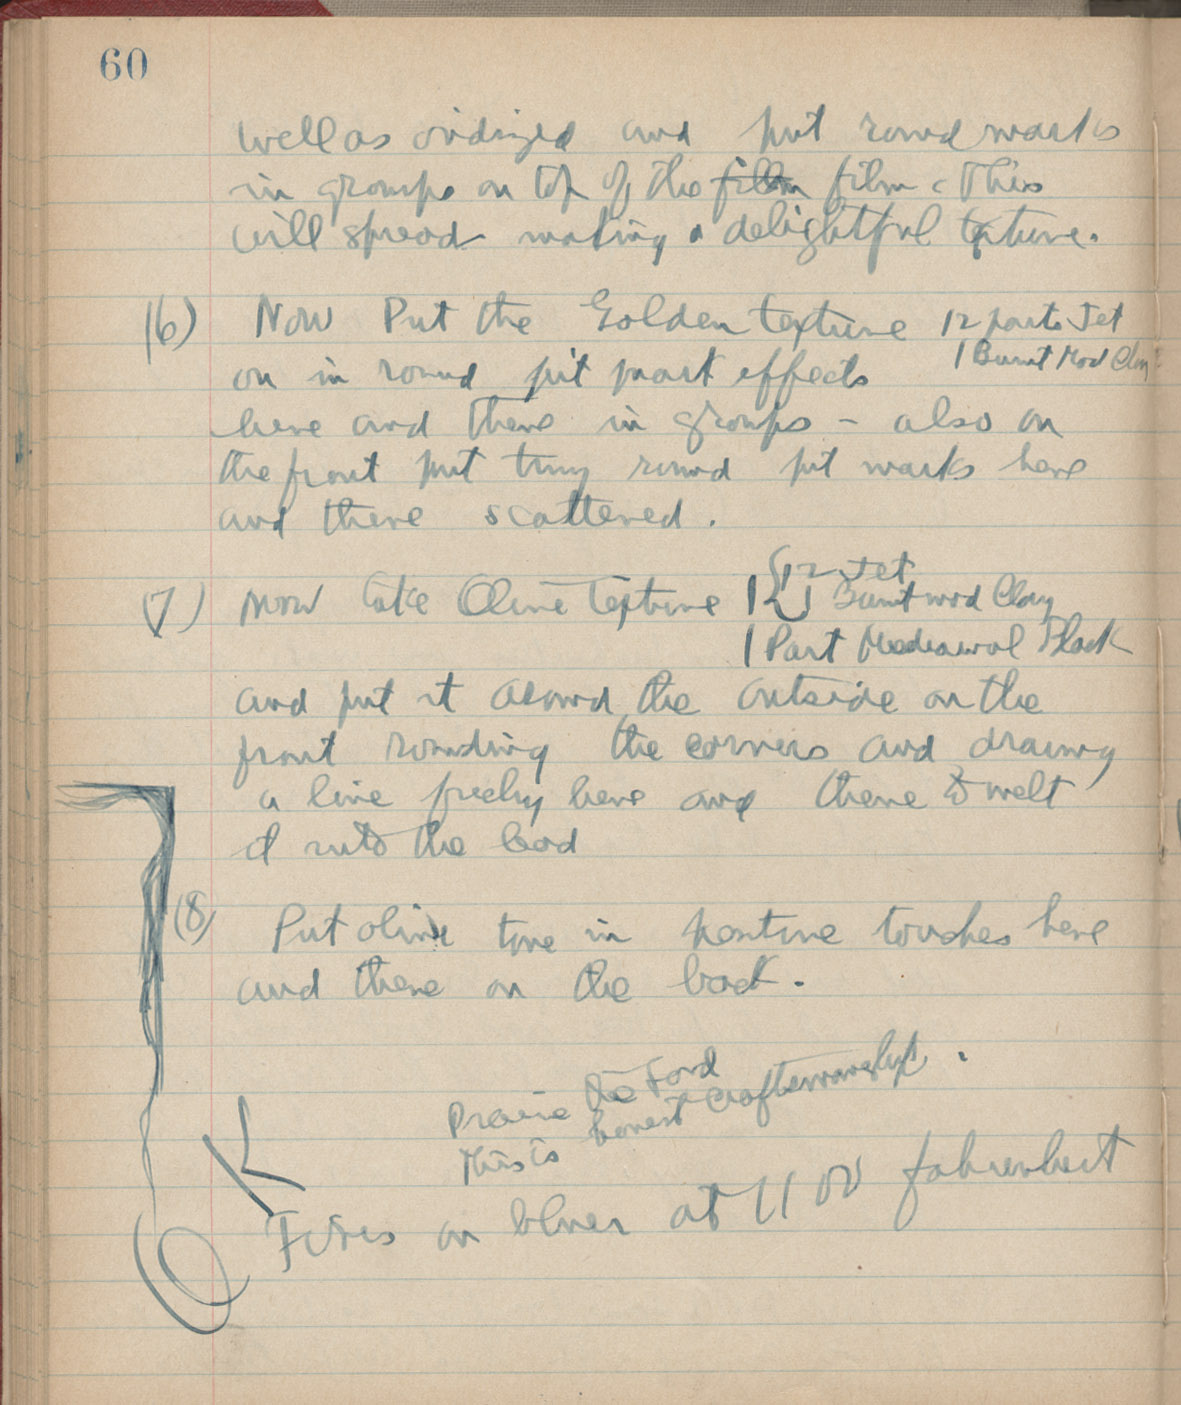 60
well as oxidized and put round marks
in groups on top of the film film. This
will spread making a delightful texture.
(6) Now Put the Golden texture 12 parts Jet
1 Burnt Mod Clay
on in round pit mark effects
here and there in groups - also on
the front put tiny round pit marks here
and there scattered.
(7) Now take Olive Texture
12 Jet
Burnt mod Clay
1 Part Mediaeval Black
and put it around the outside on the
front rounding the corners and drawing
a line freely here and there to melt
it into the
(8) Put olive tone in positive touches here
and there on the back.
Praise the Lord
This is honest craftsmanship.
OK
Fires on at 1100 fahrenheit